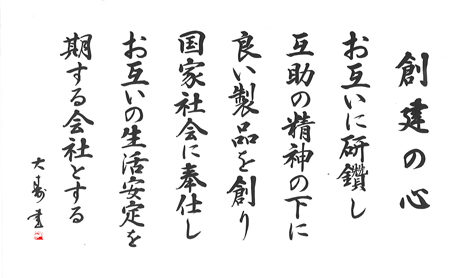 創建の心
お互いに研鑽し
互助の精神の下に
良い製品を創り
国家社会に奉仕し
お互いの生活安定を
期する会社とする